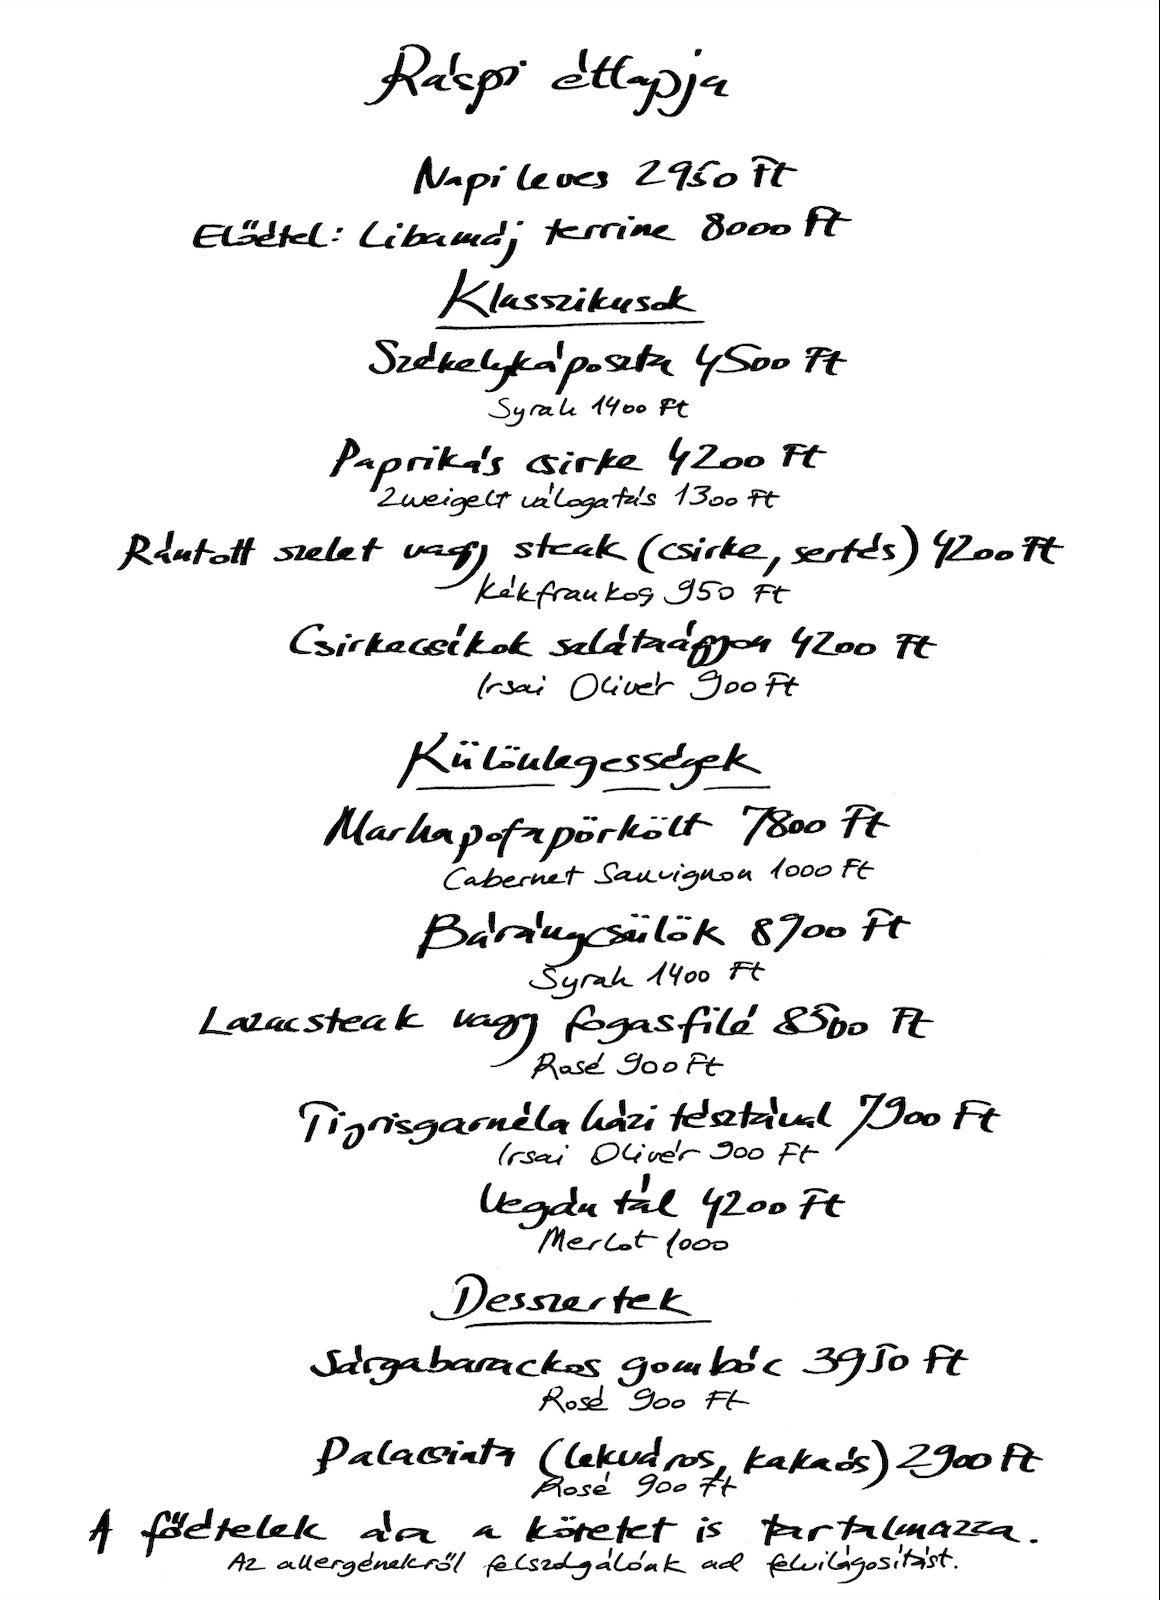 Ráspi étlapja
Napi leves 2950 Ft
Előétel: Libamáj terrine 8000 Ft
Klasszikusok
Székelykáposzta 4500 Ft
Syrah 1400 Ft
Paprikás csirke 4200 Ft
Zweigelt válogatás 1300 Ft
Rántott szelet vagy steak (csirke, sertés) 4200 Ft
Kékfrankos 950 Ft
Csirkecsíkok salátaágyon 4200 Ft
Irsai Olivér 900 Ft
Különlegességek
Marhapofapörkölt 7800 Ft
Cabernet Sauvignon 1000 Ft
Báránycsülök 8900 Ft
Syrah 1400 Ft
Lazacsteak vagy fogasfilé 8500 Ft
Rosé 900 Ft
Tigrisgarnéla házi tésztával 7900 Ft
Irsai Olivér 900 Ft
Vegán tál 4200 Ft
Merlot 1000
Desszertek
Sárgabarackos gombóc 3950 Ft
Rosé 900 Ft
Palacsinta (lekváros, kakaós) 2900 Ft
Rosé 900 Ft
A főételek ára a köretet is tartalmazza.
Az allergénekről felszolgálónk ad felvilágosítást.